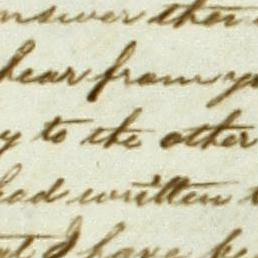 answer then
hear from yo
y to the other
had written t
I have be